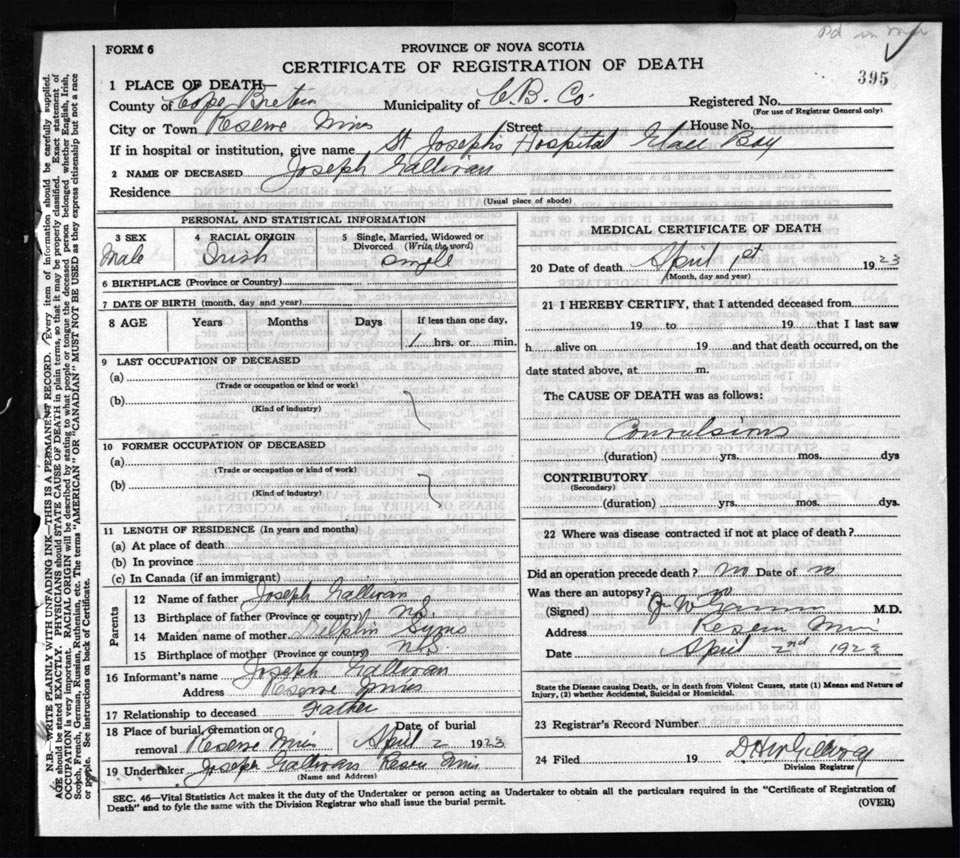 FORM 6
PROVINCE OF NOVA SCOTIA
CERTIFICATE OF REGISTRATION OF DEATH
395
1 PLACE OF DEATH—
County of Cape Breton Municipality of C. B. Co. Registered No.
(For use of Registrar General only)
City or Town Reserve Mines /Street House No.
If in hospital or institution, give name St Joseph's Hospital Glace Bay
2 NAME OF DECEASED Joseph Gallivan
Residence
(Usual place of abode)
PERSONAL AND STATISTICAL INFORMATION
3 SEX
Male
4 RACIAL ORIGIN
Irish
5 Single, Married, Widowed or Divorced (Write the word)
Single
6 BIRTHPLACE (Province or Country)
7 DATE OF BIRTH (month, day and year)
8 AGE Years Months Days If less than one day,
hrs. or min.
9 LAST OCCUPATION OF DECEASED
(a)
(Trade or occupation or kind or work)
(b)
(Kind of industry)
10 FORMER OCCUPATION OF DECEASED
(a)
(Trade or occupation or kind of work)
(b)
(Kind of industry)
11 LENGTH OF RESIDENCE (In years and months)
(a) At place of death
(b) In province
(c) In Canada (if an immigrant)
Parents
12 Name of father Joseph Gallivan
13 Birthplace of father (Province or country) NS
14 Maiden name of mother
15 Birthplace of mother (Province or country) NS
16 Informant's name Joseph Gallivan
Address Reserve Mines
17 Relationship to deceased Father
18 Place of burial, cremation or removal Reserve Mines
Date of burial
April 2 1923
19 Undertaker Joseph Gallivan Reserve Mines
(Name and Address)
MEDICAL CERTIFICATE OF DEATH
20 Date of death April 1st 1923
(Month, day and year)
21 I HEREBY CERTIFY, that I attended deceased from
19 to 19 that I last saw
h alive on 19 and that death occurred, on the
date stated above, at m.
The CAUSE OF DEATH was as follows:
Convulsions
(duration) yrs. mos. dys
CONTRIBUTORY
(Secondary)
(duration) yrs. mos. dys.
22 Where was disease contracted if not at place of death?
Did an operation precede death? No Date of no
Was there an autopsy? no
(Signed) M.D.
Address Reserve Mines
Date April 2nd 1923
State the Disease causing Death, or in death from Violent Causes, state (1) Means and Nature of
Injury, (2) whether Accidental, Suicidal or Homicidal.
23 Registrar's Record Number
24 Filed 19
Division Registrar
SEC. 46—Vital Statistics Act makes it the duty of the Undertaker or person acting as Undertaker to obtain all the particulars required in the "Certificate of Registration of
Death" and to fyle the same with the Division Registrar who shall issue the burial permit.
(OVER)
N.B.—WRITE PLAINLY WITH UNFADING INK—THIS IS A PERMANENT RECORD. Every item of information should be carefully supplied.
AGE should be stated EXACTLY. PHYSICIANS should STATE CAUSE OF DEATH in plain terms, so that it may be properly classified. Exact statement of
OCCUPATION is very important. RACIAL ORIGIN will be described by stating to what people or tongue the deceased person belonged whether English, Irish,
Scotch, French, German, Russian, Ruthenian, etc. The terms "AMERICAN" OR "CANADIAN" MUST NOT BE USED as they express citizenship but not a race
or people. See instructions on back of Certificate.